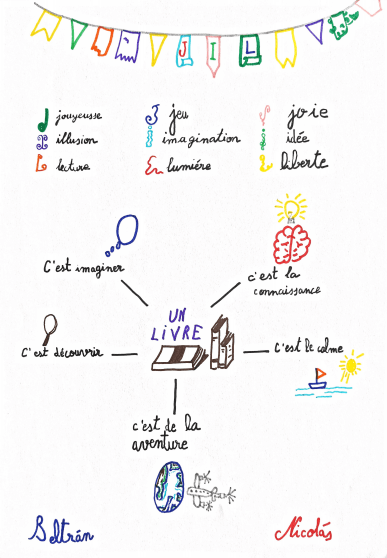 J I L
J jouyeusse J jeu J joie
I illusion I imagination I idée
L lecture L lumiére L liberte
C'est imaginer
c'est la
connaissance
UN
LiVRE
C'est découvrir
C'est le calme
c'est de la
aventure
Beltrán
Nicolás